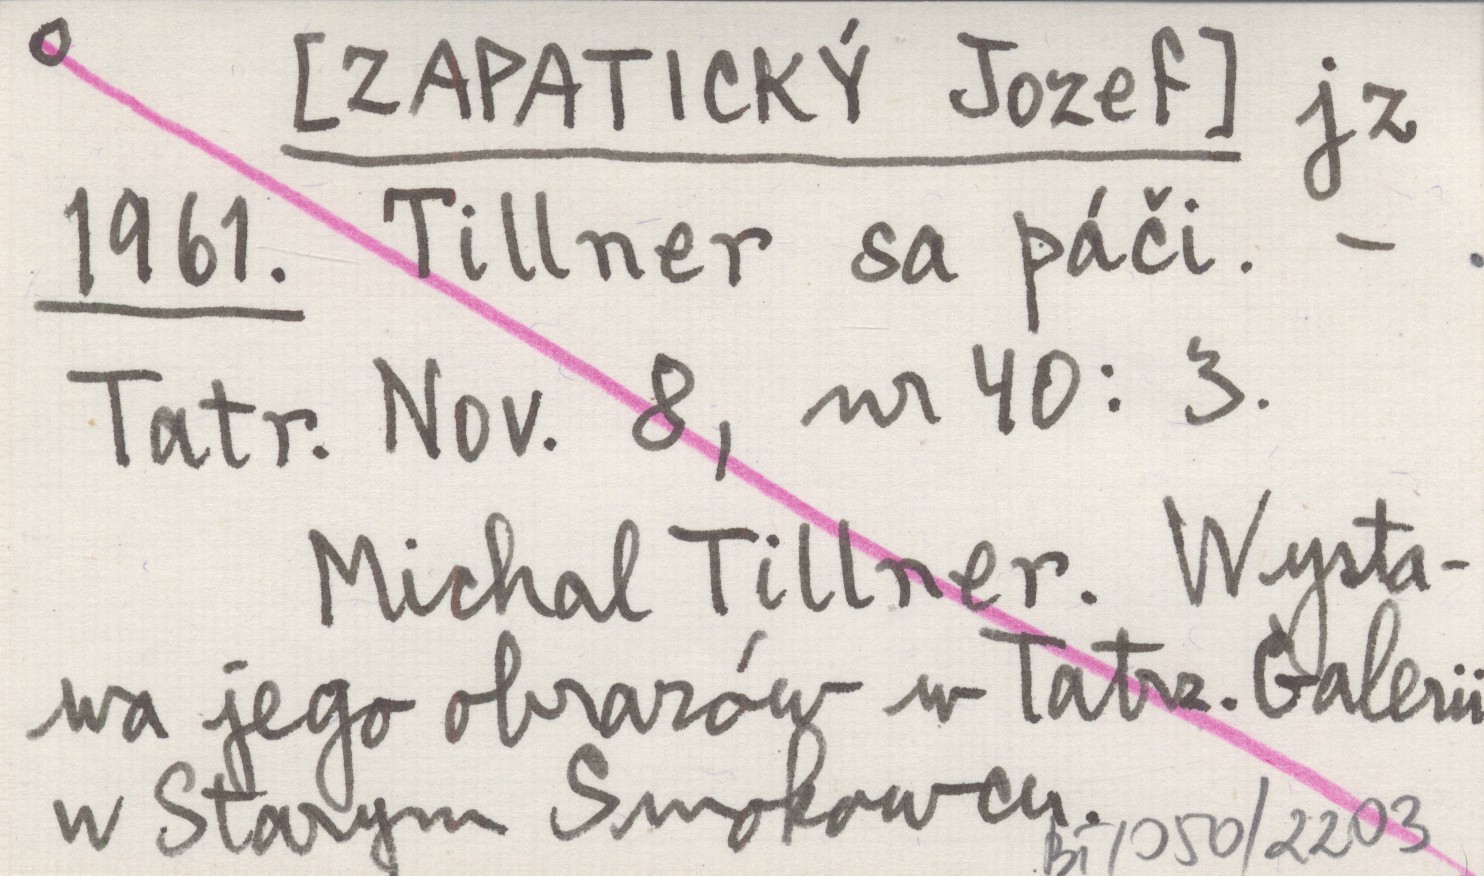 [ZAPATICKÝ Jozef] jz
1961. Tillner sa páči. –
Tatr. Nov. 8, nr 40: 3.
Michal Tillner. Wysta-
wa jego obrazów w Tatrz. Galerii
w Starym Smokowcu.
BT/050/2203